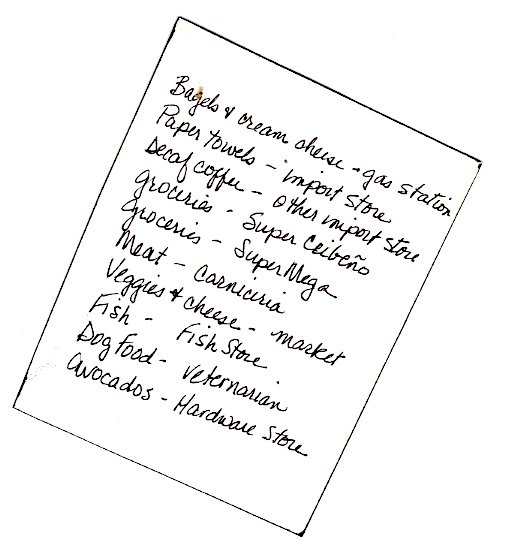 Bagels & cream cheese - gas station
Paper towels - import store
Decaf coffee - other import store
groceries - Super Ceibeño
groceries - Super Mega
Meat - carniciria
Veggies & cheese - market
Fish - Fish Store
Dog Food - Veternarian
Avocados - Hardware Store